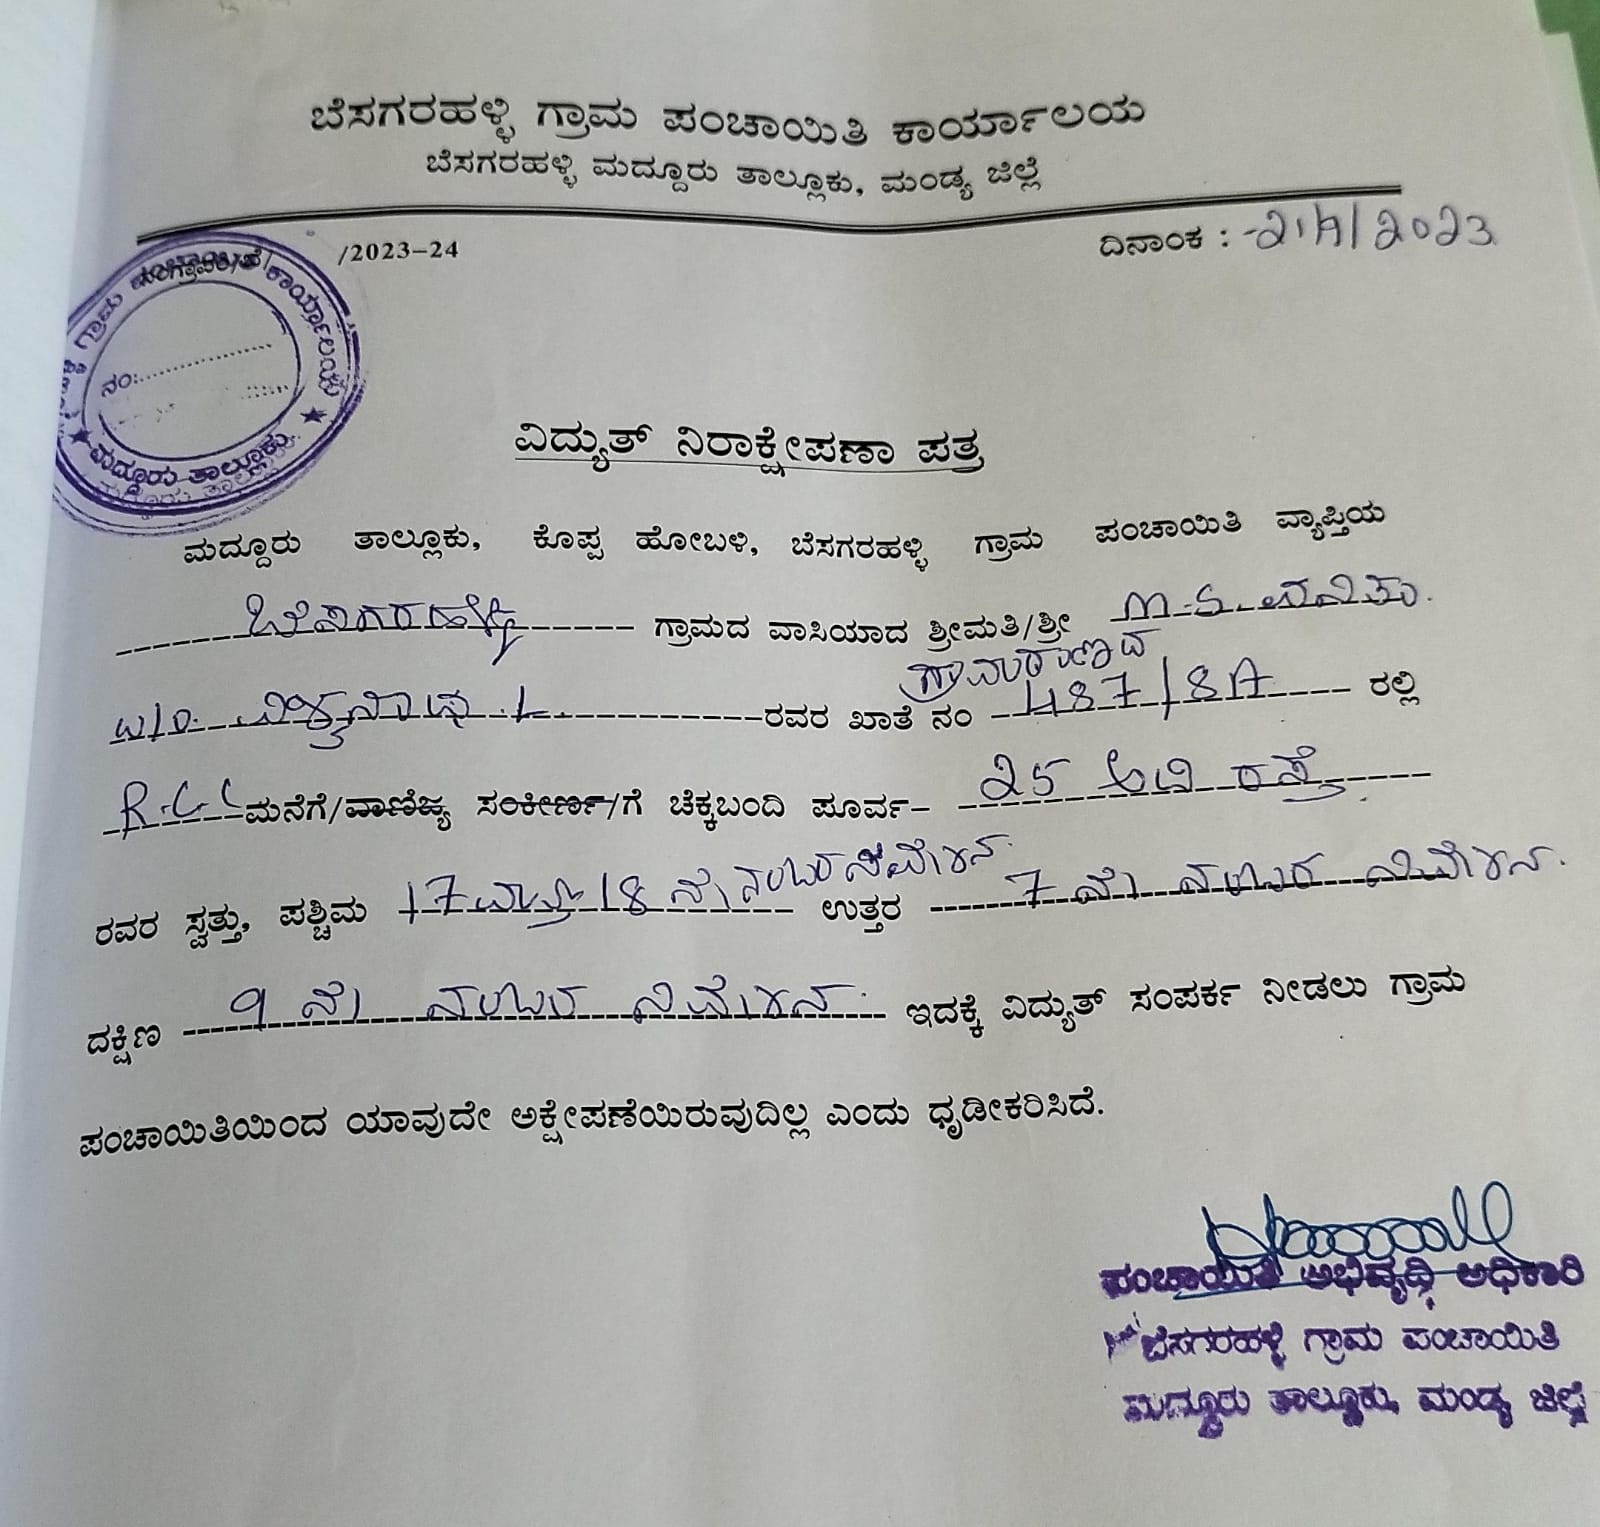 ಬೆಸಗರಹಳ್ಳಿ ಗ್ರಾಮ ಪಂಚಾಯಿತಿ ಕಾರ್ಯಾಲಯ
ಬೆಸಗರಹಳ್ಳಿ ಮದ್ದೂರು ತಾಲ್ಲೂಕು, ಮಂಡ್ಯ ಜಿಲ್ಲೆ
/2023-24
ದಿನಾಂಕ : /2023
ಗ್ರಾಮ ಕಾರ್ಯಾಲಯ
ನಂ:
ಮದ್ದೂರು ತಾಲ್ಲೂಕು
ವಿದ್ಯುತ್ ನಿರಾಕ್ಷೇಪಣಾ ಪತ್ರ
ಮದ್ದೂರು ತಾಲ್ಲೂಕು, ಕೊಪ್ಪ ಹೋಬಳಿ, ಬೆಸಗರಹಳ್ಳಿ ಗ್ರಾಮ ಪಂಚಾಯಿತಿ ವ್ಯಾಪ್ತಿಯ
ಬೆಸಗರಹಳ್ಳಿ ಗ್ರಾಮದ ವಾಸಿಯಾದ ಶ್ರೀಮತಿ/ಶ್ರೀ M.S.
ಗ್ರಾಮಠಾಣದ
W/O. L. ರವರ ಖಾತೆ ನಂ 487/8A ರಲ್ಲಿ
R.C.C ಮನೆಗೆ/ವಾಣಿಜ್ಯ ಸಂಕೀರ್ಣ/ಗೆ ಚೆಕ್ಕಬಂದಿ ಪೂರ್ವ- 25 ಅಡಿ ರಸ್ತೆ.
ರವರ ಸ್ವತ್ತು, ಪಶ್ಚಿಮ 17 ಮತ್ತು 18 ನೇ ನಂಬರ ನಿವೇಶನ. ಉತ್ತರ 7 ನೇ ನಂಬರ ನಿವೇಶನ.
ದಕ್ಷಿಣ 9 ನೇ ನಂಬರ ನಿವೇಶನ. ಇದಕ್ಕೆ ವಿದ್ಯುತ್ ಸಂಪರ್ಕ ನೀಡಲು ಗ್ರಾಮ
ಪಂಚಾಯಿತಿಯಿಂದ ಯಾವುದೇ ಅಕ್ಷೇಪಣೆಯಿರುವುದಿಲ್ಲ ಎಂದು ಧೃಡೀಕರಿಸಿದೆ.
ಪಂಚಾಯಿತಿ ಅಭಿವೃದ್ಧಿ ಅಧಿಕಾರಿ
ಬೆಸಗರಹಳ್ಳಿ ಗ್ರಾಮ ಪಂಚಾಯಿತಿ
ಮದ್ದೂರು ತಾಲ್ಲೂಕು, ಮಂಡ್ಯ ಜಿಲ್ಲೆ